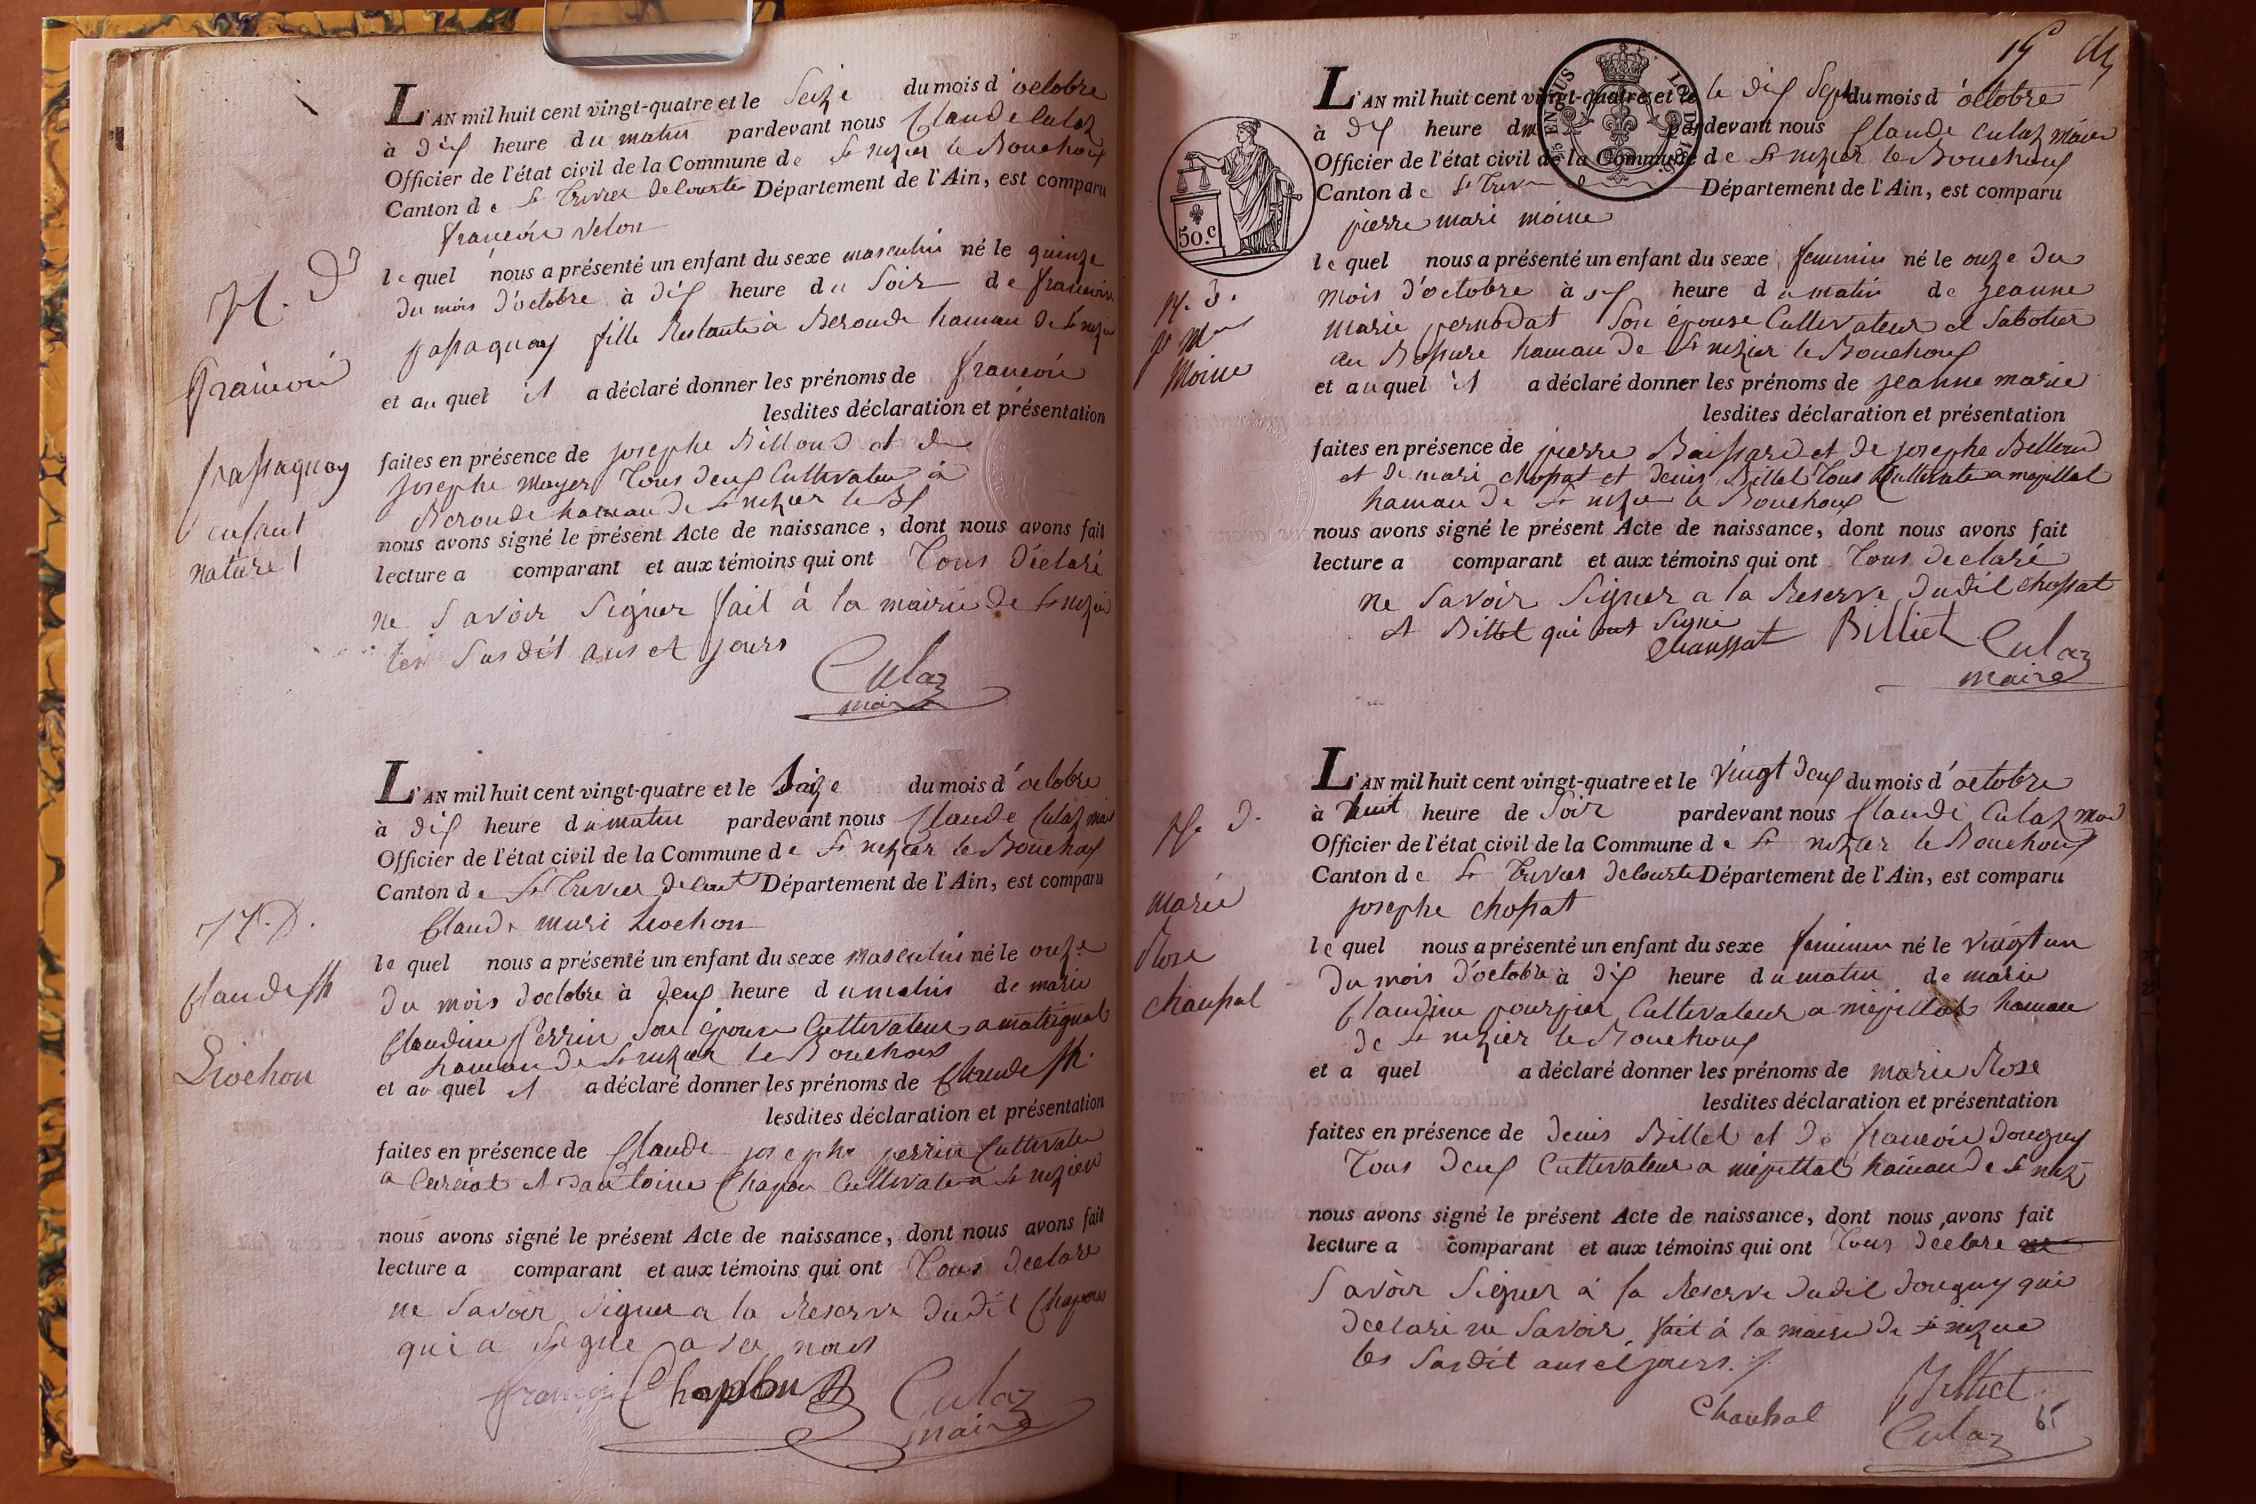 L'AN mil huit cent vingt-quatre et le Seize du mois d'octobre
à dix heure du matin pardevant nous Claude Culaz
Officier de l'état civil de la Commune de St nizier le Bouchoux
Canton de St Trivier de Courte Département de l'Ain, est comparu
françois Velon
N. D
françois
passaquay
enfent
naturel
le quel nous a présenté un enfant du sexe masculin né le quinze
du mois d'octobre à dix heure du Soir de francoise
passaquay fille Restante à Beroude hamau de St nizier
et au quel il a déclaré donner les prénoms de francois
lesdites déclaration et présentation
faites en présence de josephe Billoud et de
josephe Moyer Tous deux Cultivateur à
Beroude hamau de St nizier le Bx
nous avons signé le présent Acte de naissance, dont nous avons fait
lecture a comparant et aux témoins qui ont Tous déclaré
ne Savoir Signer fait à la mairie de St nizier
les Susdit ans et jours
Culaz
maire
L'AN mil huit cent vingt-quatre et le Saize du mois d'octobre
à dix heure du matin pardevant nous Claude Culaz
Officier de l'état civil de la Commune de St nizier le Bouchoux
Canton de St Trivier de Court Département de l'Ain, est comparu
Claude mari Livchon
N. D.
Claude
Livchon
le quel nous a présenté un enfant du sexe masculin né le onze
du mois doctobre à deux heure du matin de marie
Claudine Perrin Son épouse Cultivateur a
hamau de St nizier le Bouchoux
et au quel il a déclaré donner les prénoms de Claude
lesdites déclaration et présentation
faites en présence de Claude josephe perrin Cultivateur
a Curciat et dantoine Chapon Cultivateur a St nizier
nous avons signé le présent Acte de naissance, dont nous avons fait
lecture a comparant et aux témoins qui ont Tous declare
ne Savoir Signer a la Reserve dudit Chapon
qui a Signe avec nous
françois Chapbon
Culaz
maire
15
L'AN mil huit cent vingt-quatre et le le dix Sept du mois d'octobre
à dix heure du pardevant nous Claude Culaz maire
Officier de l'état civil de la Commune de St nizier le Bouchoux
Canton de St Trivier Département de l'Ain, est comparu
pierre mari moine
50.c
N. D.
Moine
le quel nous a présenté un enfant du sexe feminin né le onze du
mois d'octobre à six heure du matin de jeanne
marie pernodat Son épouse Cultivateur et Saboteur
au hamau de St nizier le Bouchoux
et au quel il a déclaré donner les prénoms de jeanne marie
lesdites déclaration et présentation
faites en présence de pierre Baissard et de josephe Billoud
et de mari chossat et denis Billet Tous Cultivate a mepillat
hamau de St nizie le Bouchoux
nous avons signé le présent Acte de naissance, dont nous avons fait
lecture a comparant et aux témoins qui ont Tous declaré
ne Savoir Signer a la Reserve dudit chossat
et Billet qui ont Signé
Chaussat Billiet Culaz
maire
L'AN mil huit cent vingt-quatre et le vingt deux du mois d'octobre
à huit heure de Soir pardevant nous Claude Culaz
Officier de l'état civil de la Commune de St nizier le Bouchoux
Canton de St Trivier de Courte Département de l'Ain, est comparu
josephe chossat
N. D.
marie
Rose
Chaussat
le quel nous a présenté un enfant du sexe feminin né le vingt un
du mois d'octobre à dix heure du matin de marie
Claudine pourpier Cultivateur a mepillat hamau
de St nizier le Bouchoux
et a quel a déclaré donner les prénoms de marie Rose
lesdites déclaration et présentation
faites en présence de denis Billet et de francois douguy
Tous deux Cultivateur a mépillat hamau de St niz
nous avons signé le présent Acte de naissance, dont nous avons fait
lecture a comparant et aux témoins qui ont Tous declare ne
Savoir Signer à la Reserve dudit douguy qui
declare ne Savoir, fait à la mairie de St nizier
les Susdit ans et jours
Chaussat Billiet
Culaz